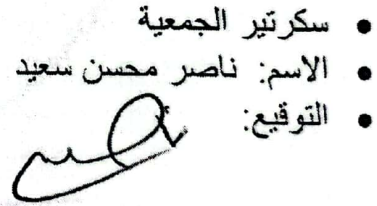 • سكرتير الجمعية
• الاسم: ناصر محسن سعيد
• التوقيع: